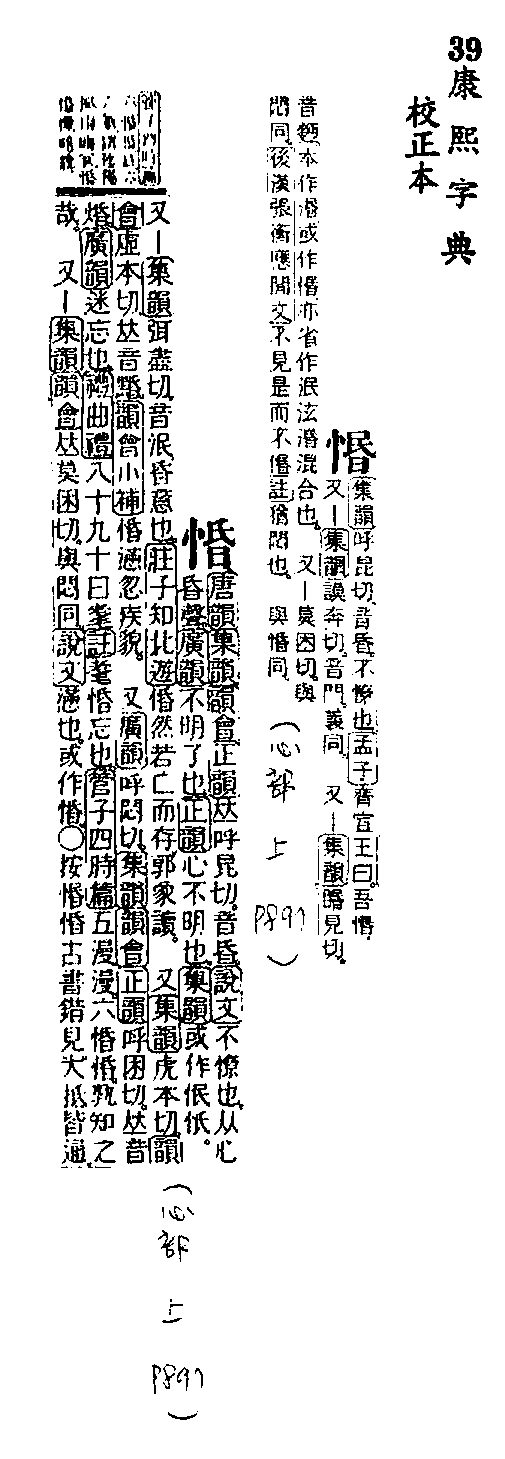 39
康熙字典
校正本
惛
集韻呼昆切音昏不憭也孟子齊宣王曰吾惛
又一集韻謨奔切音門義同 又一集韻眳見切
音麪本作湣或作惛亦省作泯泫湣混合也 又一莫困切與
悶同後漢張衡應閒文不見是而不惛註猶悶也 與惽同
(心部 上 P897)
惽
唐韻集韻韻會正韻𠀤呼昆切音昏說文不憭也从心
昏聲廣韻不明了也正韻心不明也集韻或作怋忯。
又一集韻弭盡切音泯昏意也莊子知北遊惽然若亡而存郭象讀 又集韻虎本切韻
會虛本切𠀤音 韻會小補惽 忽疾貌 又廣韻呼悶切集韻韻會正韻呼困切𠀤音
惛廣韻迷忘也禮曲禮八十九十曰耄註耄惛忘也管子四時篇五漫漫六惽惽孰知之
哉 又一集韻韻會𠀤莫困切與悶同說文懣也或作惛○按惛惽古書錯見大抵皆通
(心部 上 P897)